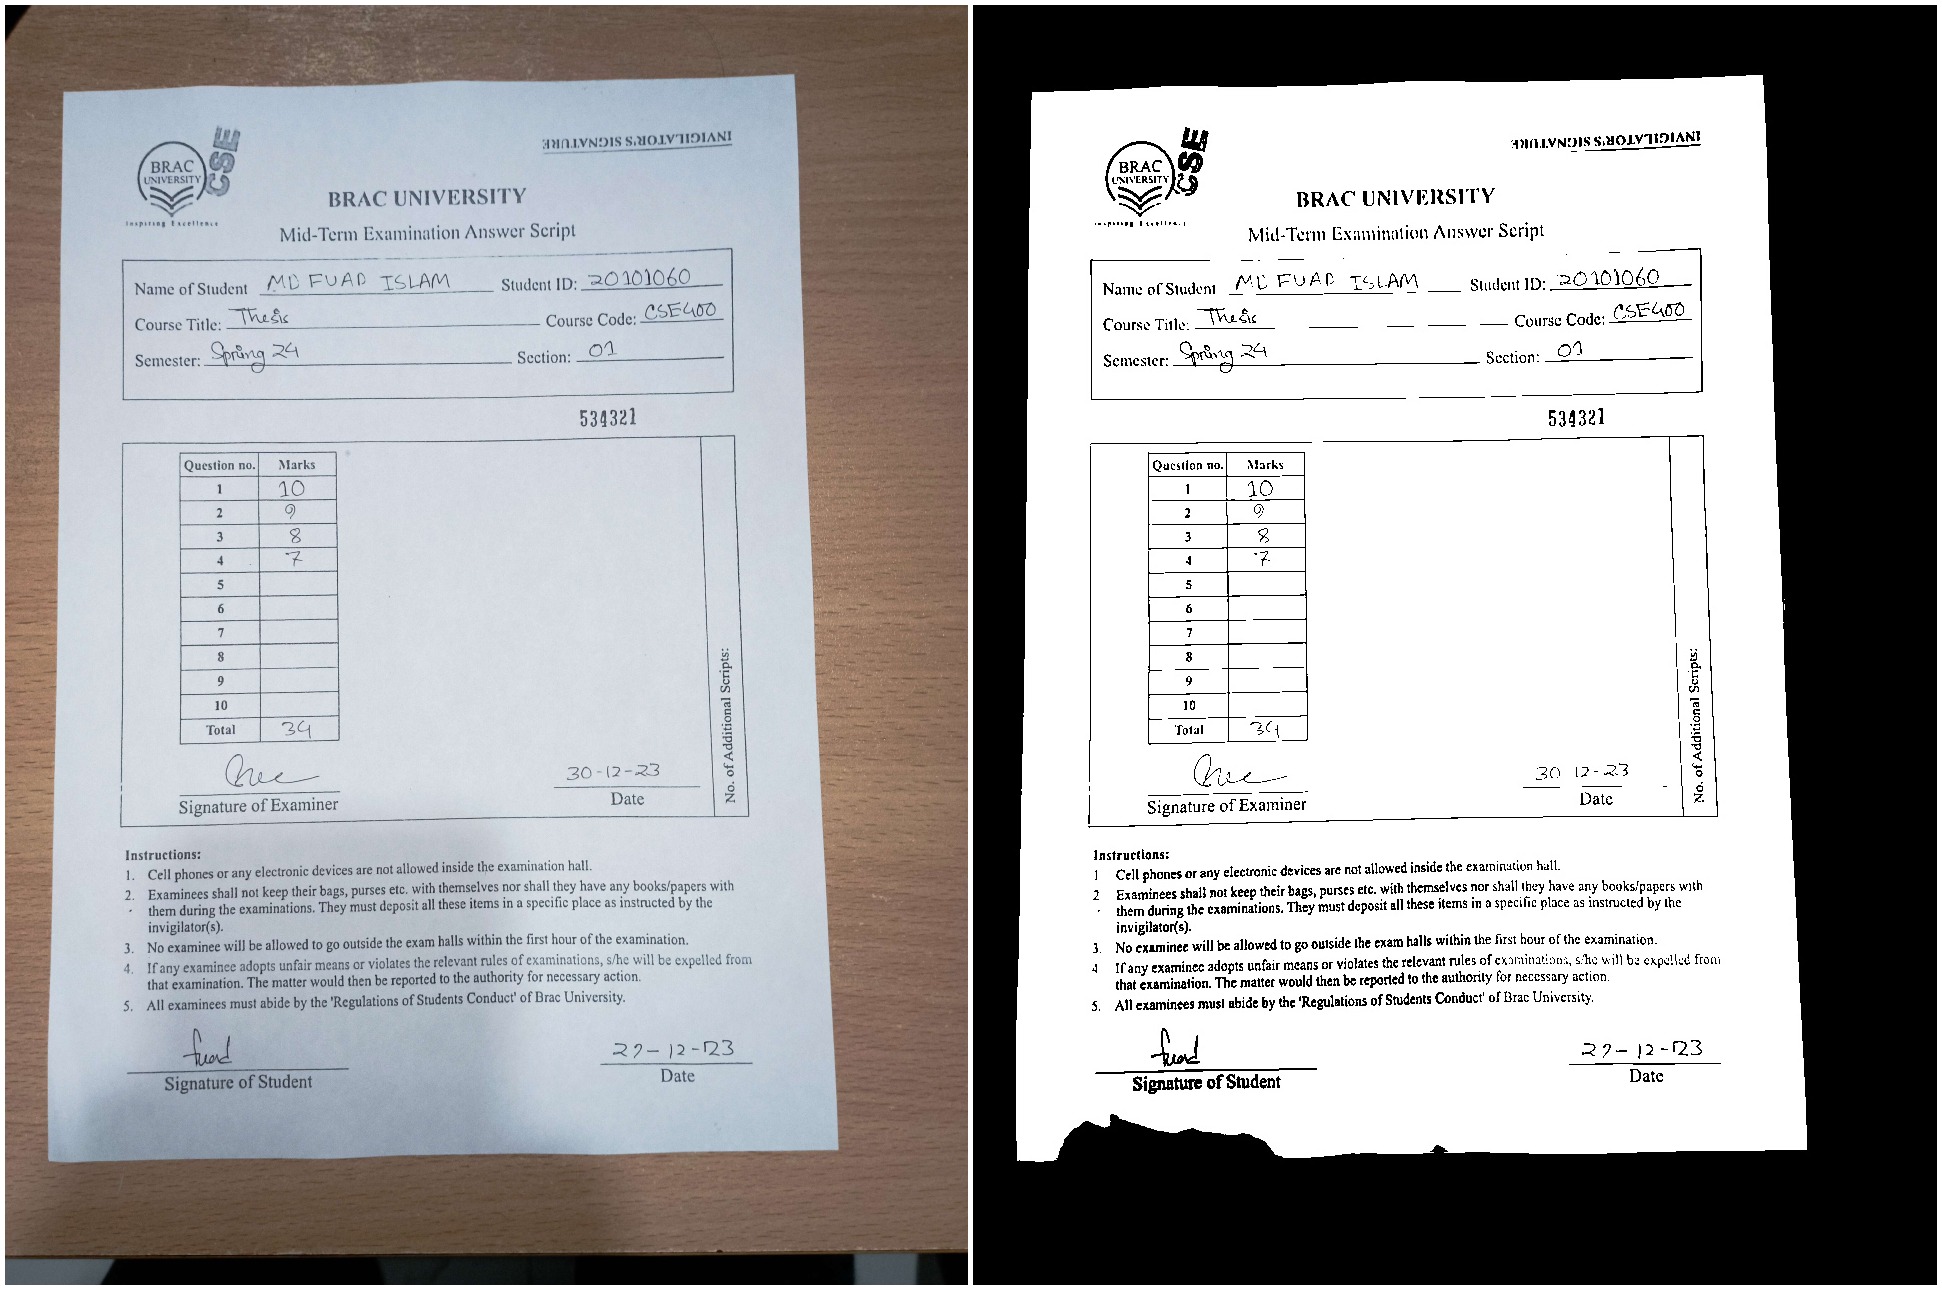 INVIGILATOR'S SIGNATURE
CSE
BRAC
UNIVERSITY
Inspiring Excellence
BRAC UNIVERSITY
Mid-Term Examination Answer Script
Name of Student MD FUAD ISLAM Student ID: 20101060
Course Title: Thesis Course Code: CSE400
Semester: Spring 24 Section: 01
534321
Question no. Marks
1 10
2 9
3 8
4 7
5
6
7
8
9
10
Total 34
30-12-23
Signature of Examiner Date
No. of Additional Scripts:
Instructions:
1. Cell phones or any electronic devices are not allowed inside the examination hall.
2. Examinees shall not keep their bags, purses etc. with themselves nor shall they have any books/papers with
them during the examinations. They must deposit all these items in a specific place as instructed by the
invigilator(s).
3. No examinee will be allowed to go outside the exam halls within the first hour of the examination.
4. If any examinee adopts unfair means or violates the relevant rules of examinations, s/he will be expelled from
that examination. The matter would then be reported to the authority for necessary action.
5. All examinees must abide by the 'Regulations of Students Conduct' of Brac University.
Fuad 29-12-23
Signature of Student Date
INVIGILATOR'S SIGNATURE
CSE
BRAC
UNIVERSITY
Inspiring Excellence
BRAC UNIVERSITY
Mid-Term Examination Answer Script
Name of Student MD FUAD ISLAM Student ID: 20101060
Course Title: Thesis Course Code: CSE400
Semester: Spring 24 Section: 01
534321
Question no. Marks
1 10
2 9
3 8
4 7
5
6
7
8
9
10
Total 34
30 12-23
Signature of Examiner Date
No. of Additional Scripts:
Instructions:
1 Cell phones or any electronic devices are not allowed inside the examination hall.
2 Examinees shall not keep their bags, purses etc. with themselves nor shall they have any books/papers with
them during the examinations. They must deposit all these items in a specific place as instructed by the
invigilator(s).
3. No examinee will be allowed to go outside the exam halls within the first hour of the examination.
4 If any examinee adopts unfair means or violates the relevant rules of examinations, s/he will be expelled from
that examination. The matter would then be reported to the authority for necessary action.
5. All examinees must abide by the 'Regulations of Students Conduct' of Brac University.
Fuad 29-12-23
Signature of Student Date